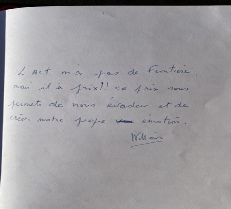 L'Art n'a pas de Frontière
mais il a prix!! ce prix nous
permets de nous évader et de
créer notre propre émotion.
William